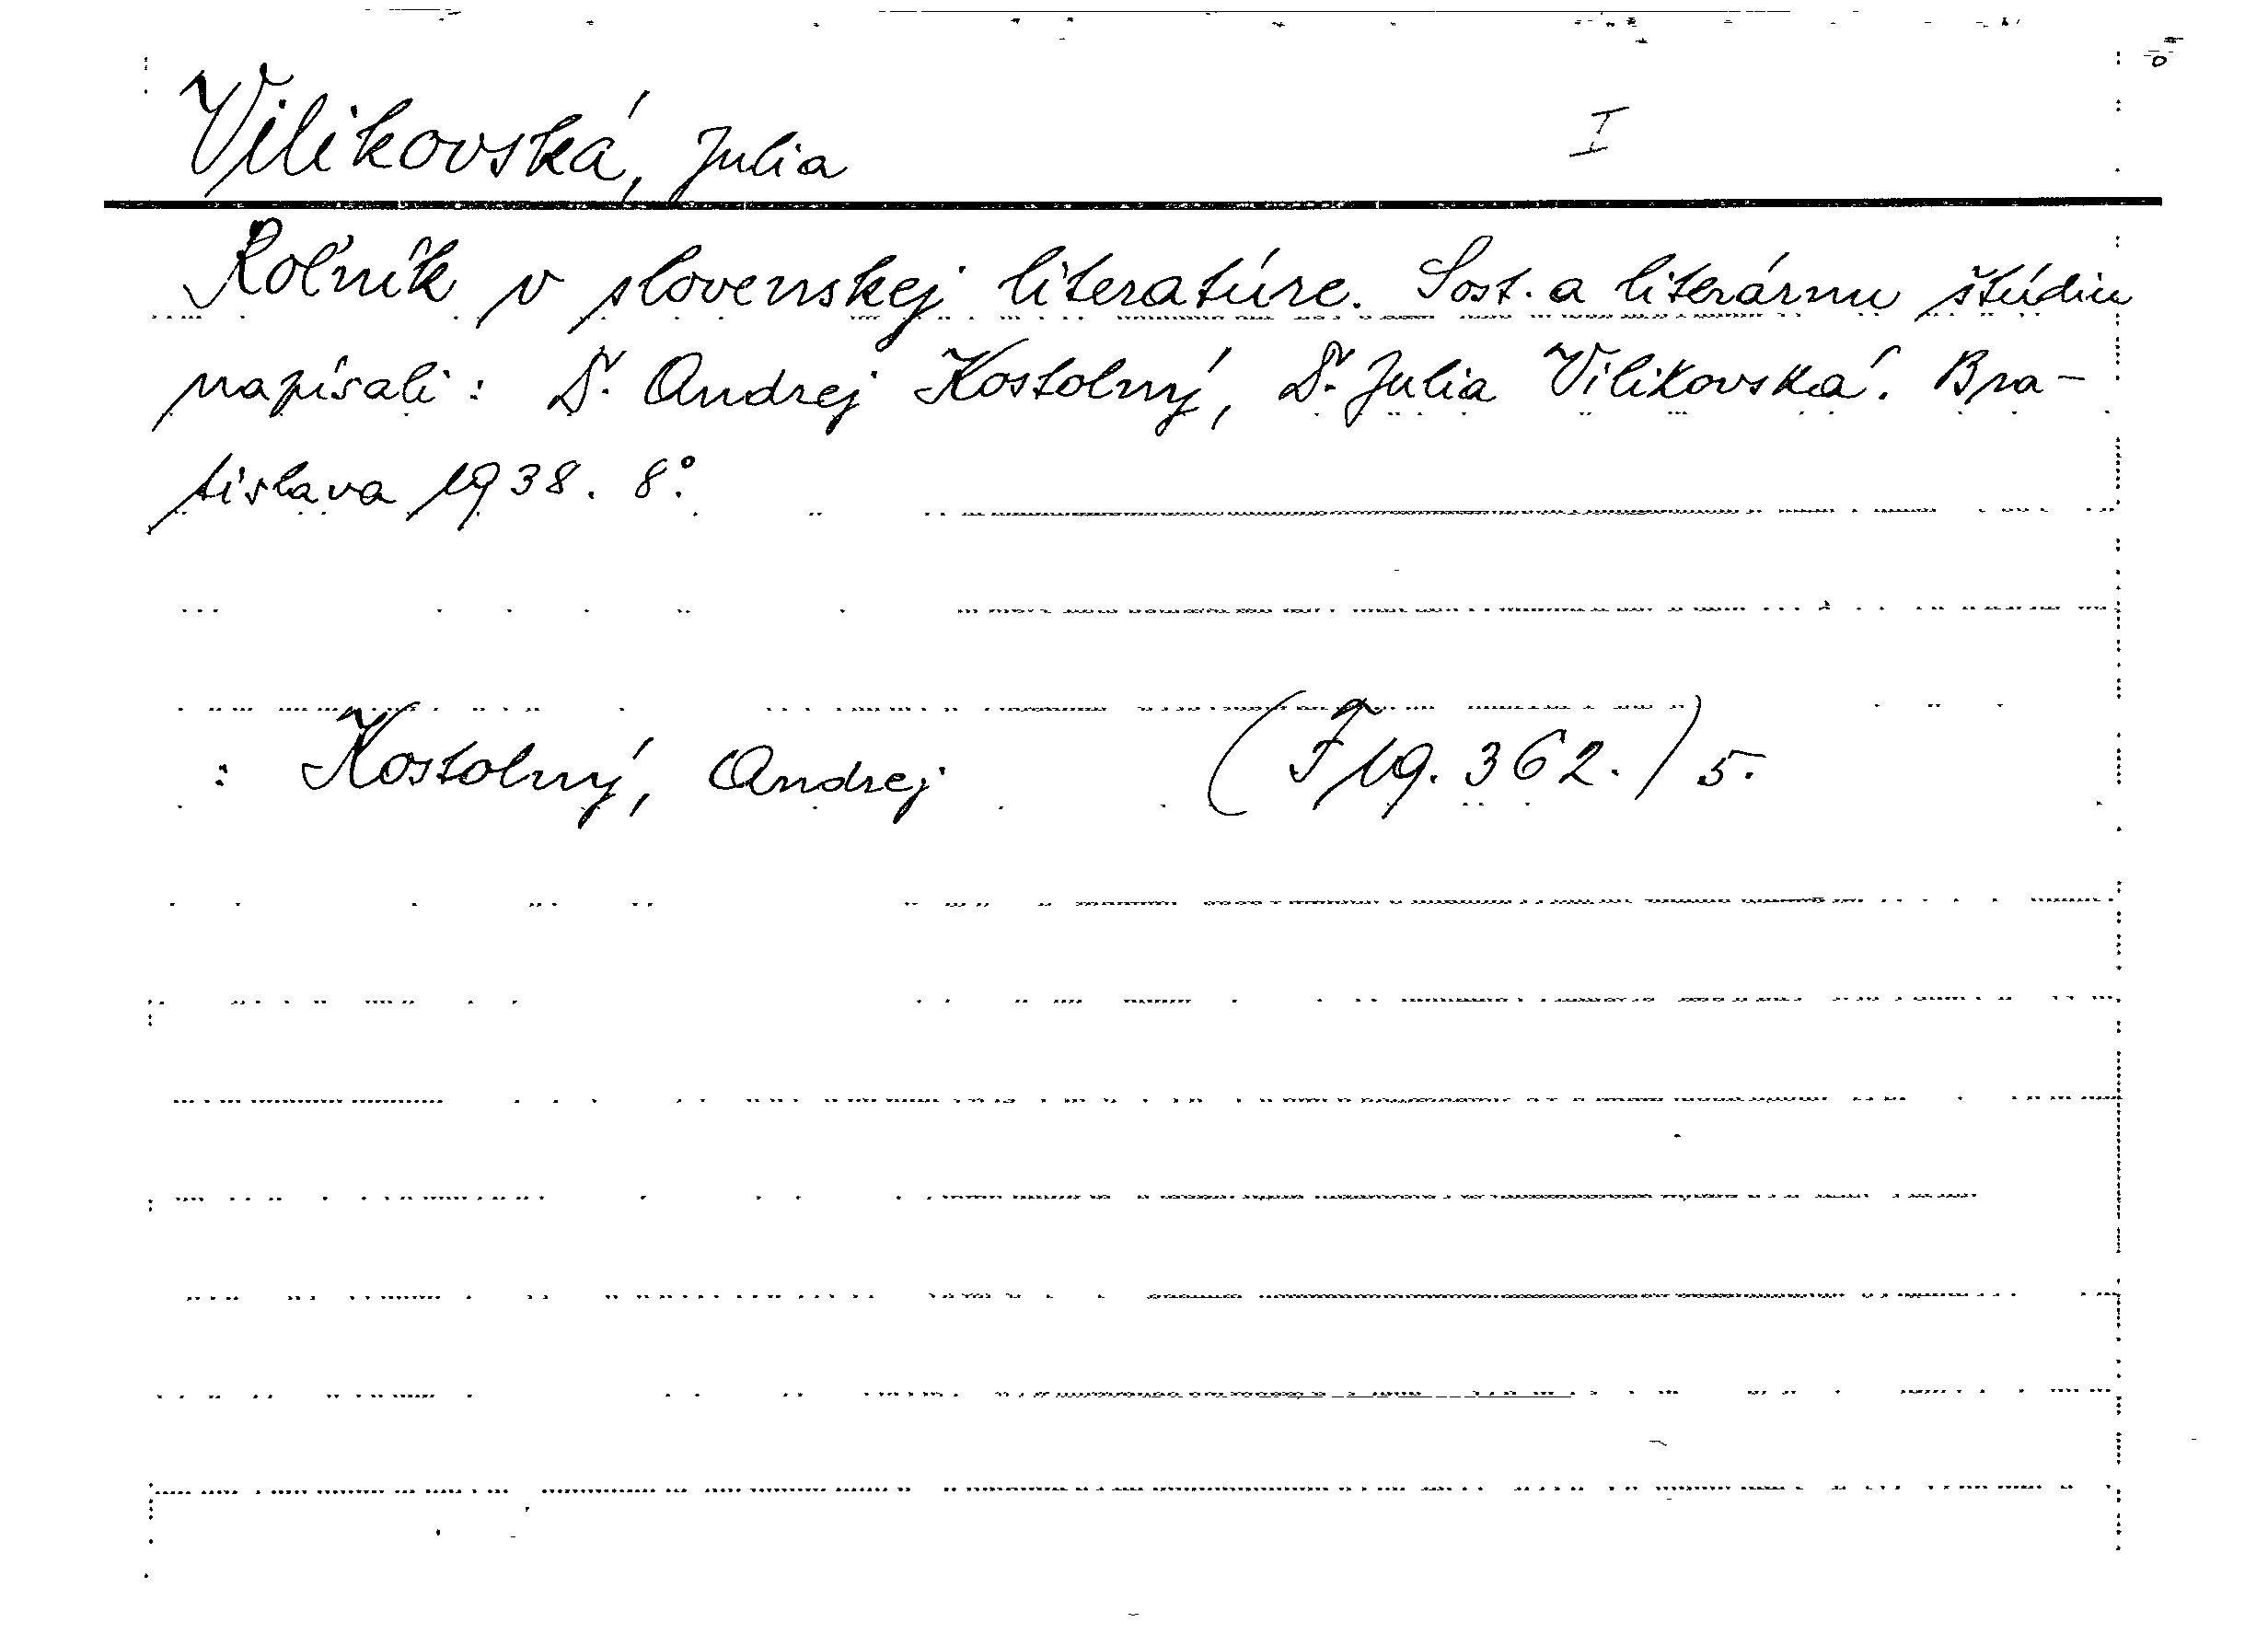 Vilikovská, Julia I
Roľník v slovenskej literatúre. Sost. a literárnu štúdiu
napísali: Dr. Andrej Kostolný, Dr. Julia Vilikovská. Bra-
tislava 1938. 8°.
: Kostolný, Andrej (F 19.362.) 5.